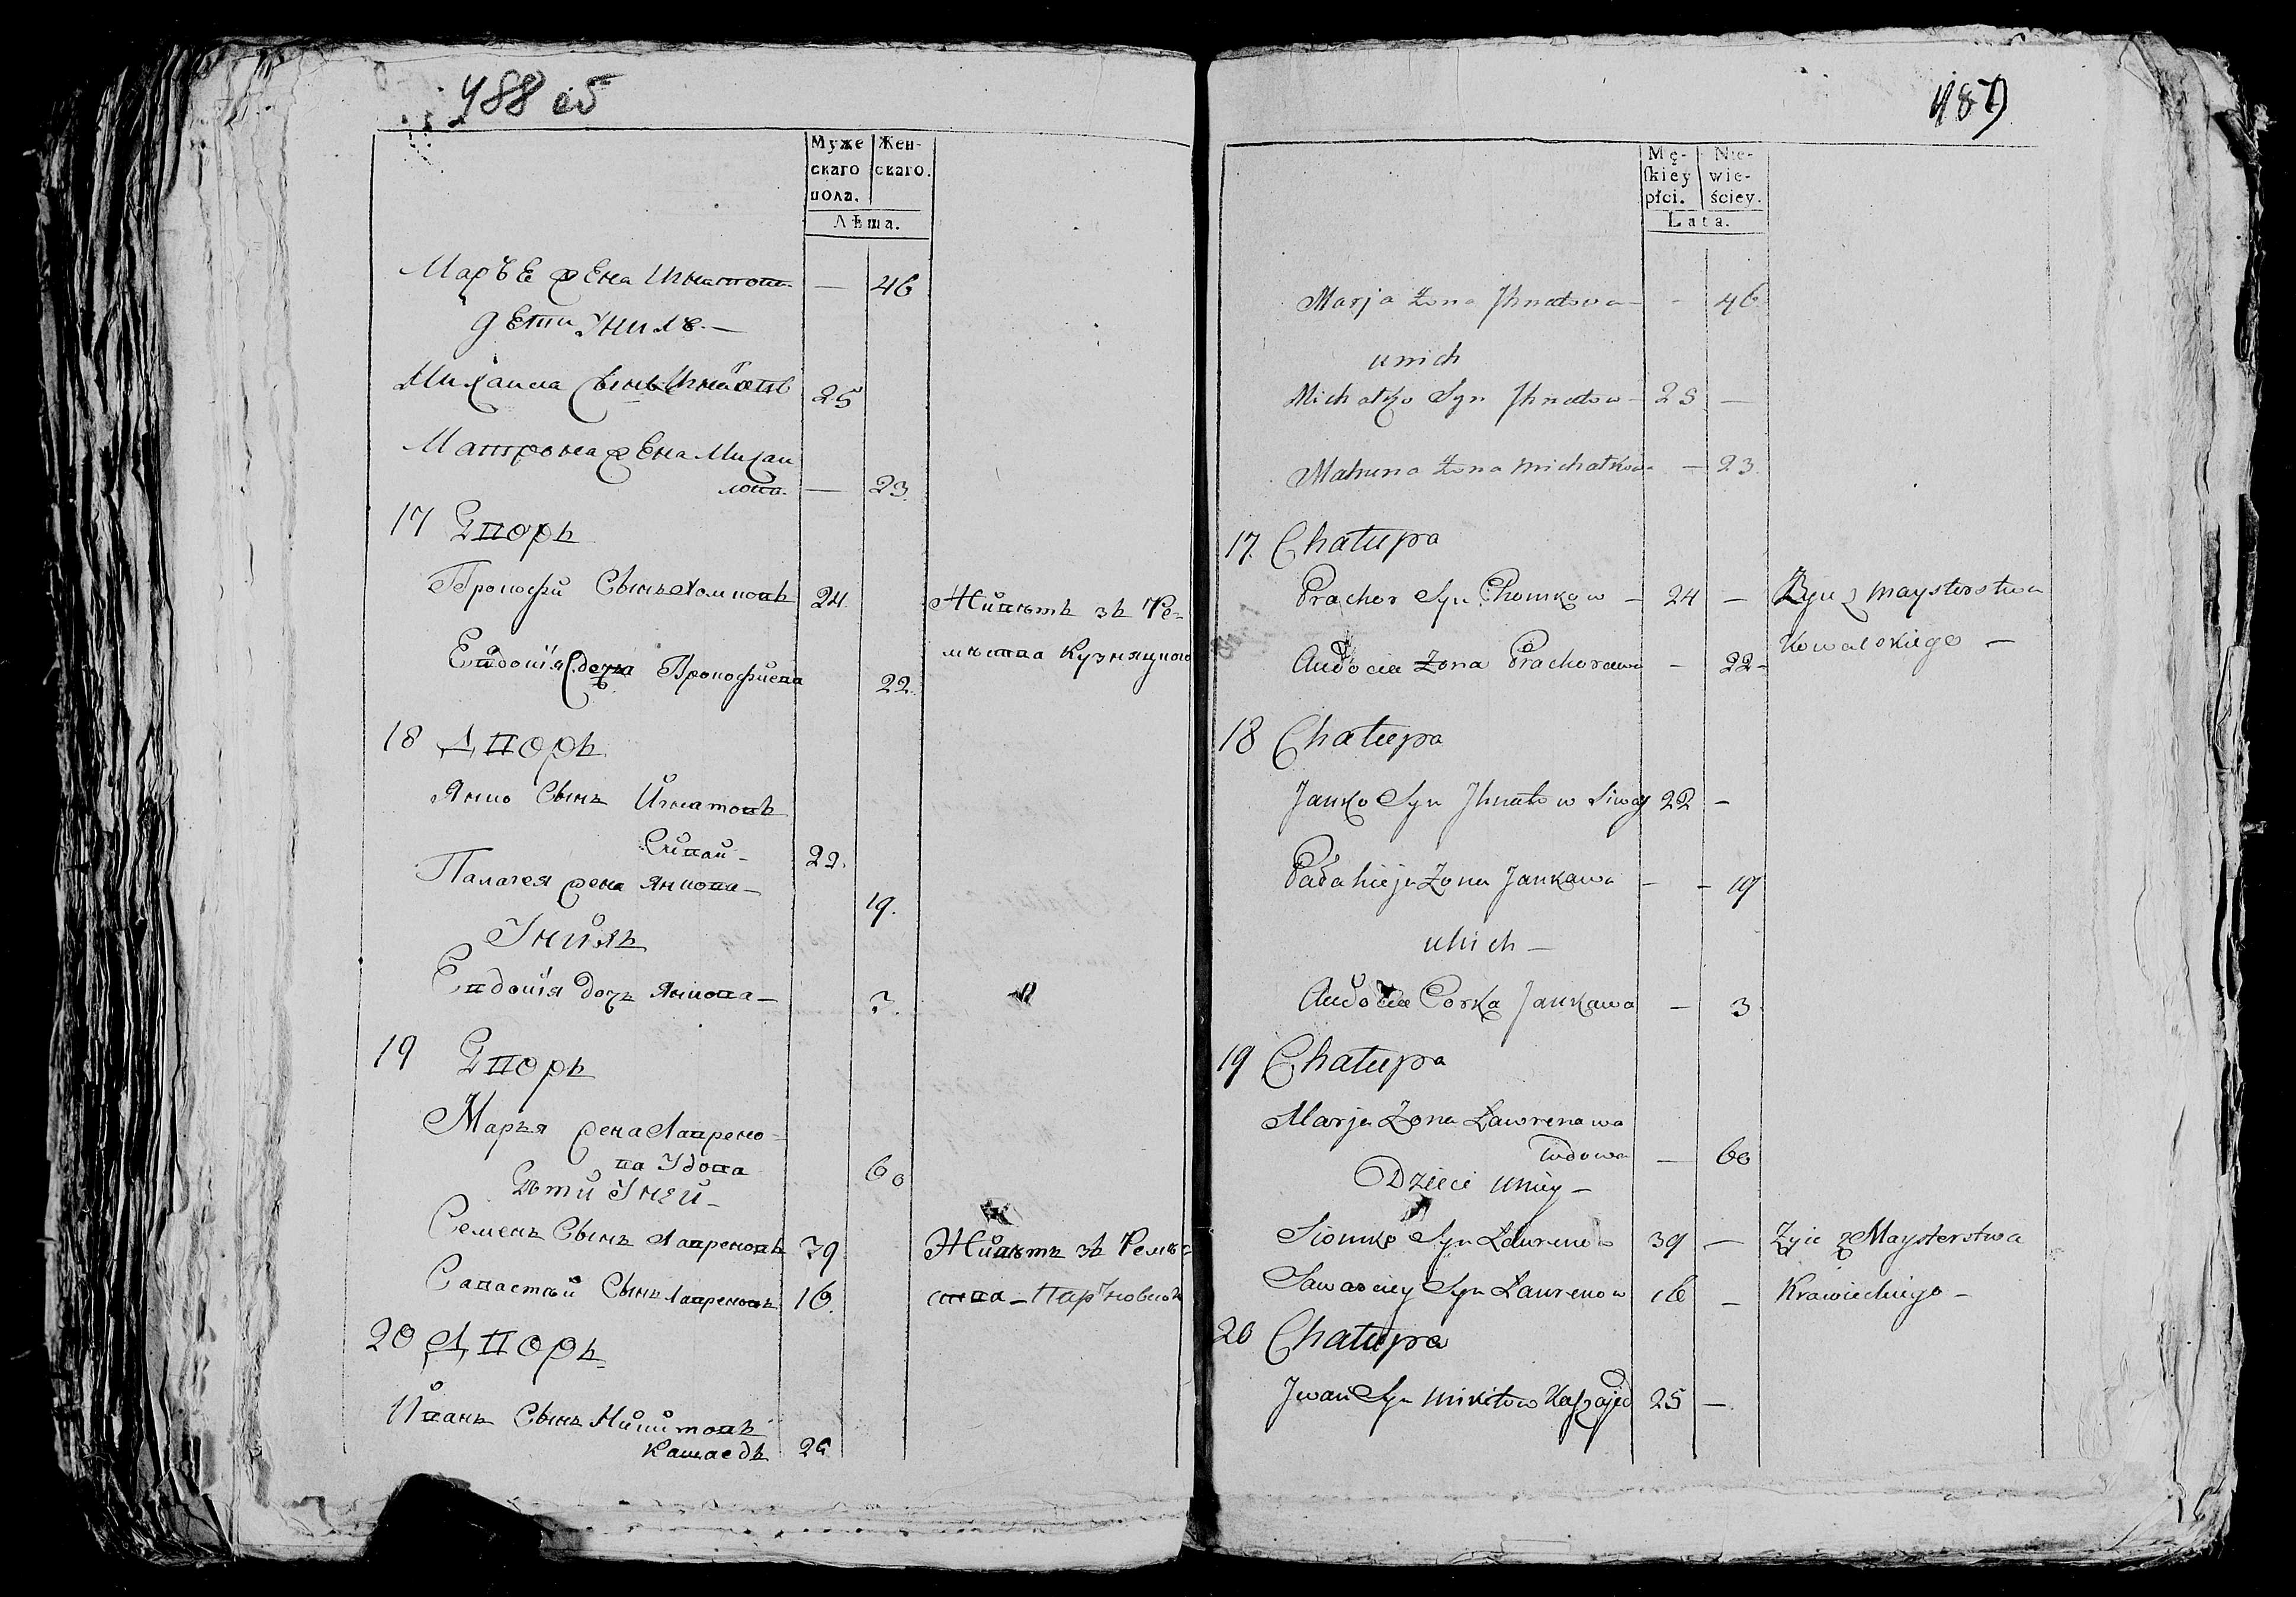 488 об
Муже
скаго
пола.
Жен-
скаго.
Лѣта.
Марѣе жена Игнатова — 46
дети У нихъ. —
Михаила Сынъ Игнатовъ 25
Матрона жена Михаи
лова. — 23
17 Дворъ
Прокофи Сынъ Хомковъ 24.
Живѣтъ зъ Ре-
Евдокия жена Прокофиева 22.
мѣства Кузняцкого
18 Дворъ
Янко Сынъ Игнатовъ
Сивай - 22.
Палагея жена Янкова — 19.
У нихъ
Евдокия дочь Янкова — 3.
19 Дворъ
Марья жена Лаврено-
ва Удова 60
Дѣти У ней -
Семенъ Сынъ Лавреновъ 39
Живѣтъ зъ Ремѣс-
Савастей Сынъ Лавреновъ 16.
ства
20 Дворъ
Иванъ Сынъ Микитовъ
Кашаедъ 25
489
Mę-
skiey
płci.
Nie-
wie-
ściey.
Lata.
Marja Żona Jhnatowa - - 46
unich
Michałko Syn Jhnatow - 25 —
Matruna Żona Michałkowa — 23
17. Chałupa
Prachor Syn Chomkow — 24 — Żyie z Maysterstwa
Audocia Żona Prachorowa — 22 - Kowalskiego —
18 Chałupa
Janko Syn Jhnatow Siway 22 —
Pałahieja Żona Jankawa - - 19
unich —
Audocia Corka Jankawa — 3
19 Chałupa
Marja Żona Ławrenowa
Wdowa — 60
Dzieci uniey —
Siomko Syn Ławrenow 39 — Żyie z Maysterstwa
Sawasciey Syn Ławrenow 16 — Krawieckiego —
20 Chałupa
Jwan Syn Mikitow Kaszajed 25 —